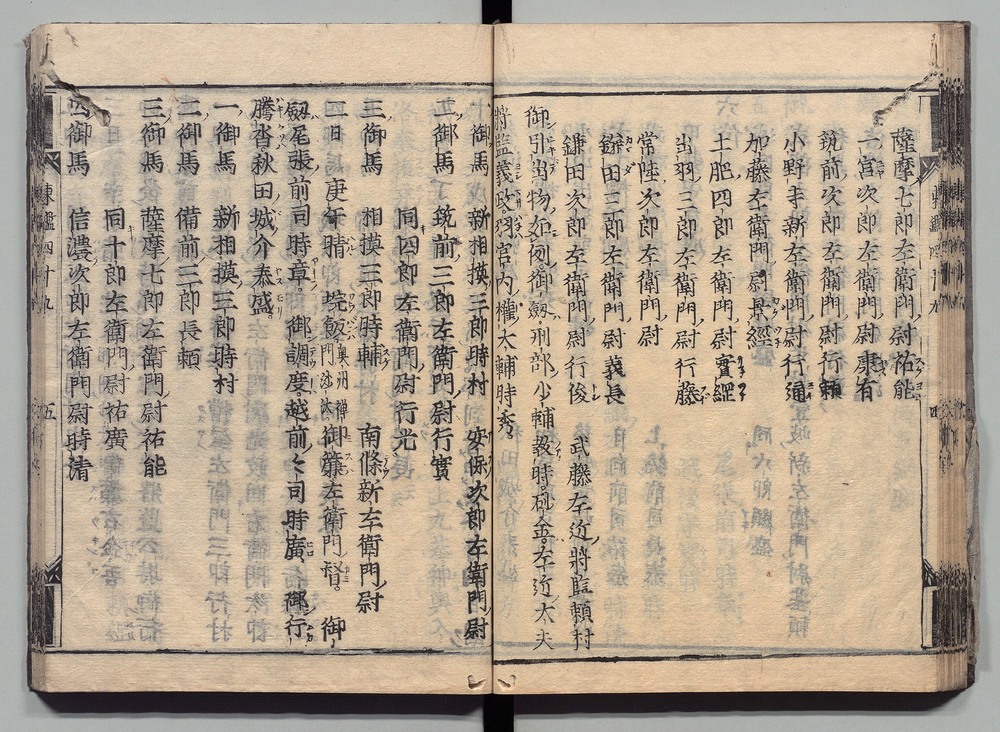 薩摩七郎左衛門尉祐能
一宮次郎左衛門尉康有
筑前次郎左衛門尉行頼
小野寺新左衛門尉行通
加藤左衛門尉景經
土肥四郎左衛門尉實經
出羽三郎左衛門尉行藤
常陸次郎左衛門尉
鎌田三郎左衛門尉義長
鎌田次郎左衛門尉行俊 武藤左近將監頼村
御引出物如例御劔刑部少輔教時砂金左近大夫
將監義政羽宮内權大輔時秀
一御馬 新相摸三郎時村 安保次郎左衛門尉
二御馬 筑前三郎左衛門尉行實
同四郎左衛門尉行光
三御馬 相摸三郎時輔 南條新左衛門尉
二日庚午晴 垸飯奥州禪門沙汰御簾左衛門督御
劔尾張前司時章御調度越前々司時廣御行
騰沓秋田城介泰盛
一御馬 新相摸三郎時村
二御馬 備前三郎長頼
三御馬 薩摩七郎左衛門尉祐能
同十郎左衛門尉祐廣
四御馬 信濃次郎左衛門尉時清
東鑑四十九 五